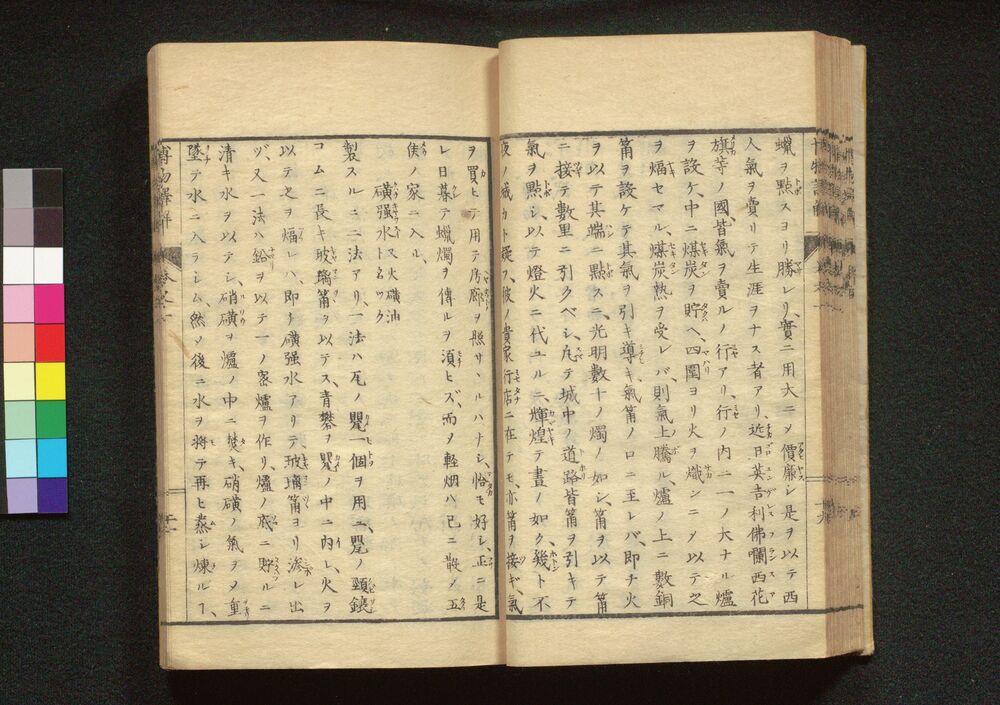 蠟ヲ點スヨリ勝レリ、實ニ用大ニ〆價廉シ是ヲ以テ西
人氣ヲ賣リテ生涯ヲナス者アリ、近日英吉利佛蘭西花
旗等ノ國、皆氣ヲ賣ルノ行アリ、行ノ内ニ一ノ大ナル爐
ヲ設ケ、中ニ煤炭ヲ貯ヘ、四圍ヨリ火ヲ熾ンニ〆以テ之
ヲ煏セマル、煤炭熱ヲ受レバ則氣上騰ル、爐ノ上ニ數銅
筩ヲ設ケテ其氣ヲ引キ導キ氣筩ノ口ニ至レバ、即チ火
ヲ以テ其端ニ點スニ、光明數十ノ燭ノ如シ、筩ヲ以テ筩
ニ接テ數里ニ引クベシ、凡テ城中ノ道路皆筩ヲ引キテ
氣ヲ點シ、以テ燈火ニ代ユルニ、輝煌テ晝ノ如ク、幾ト不
夜ノ城カト疑フ、彼ノ貴家行店ニ在テモ、亦筩ヲ接ギ、氣
ヲ買ヒテ用テ房廊ヲ照サヾルハナシ、恰モ好シ、正ニ是
レ日暮テ蠟燭ヲ傳ルヲ須ヒズ、而〆輕烟ハ已ニ散〆五
侯ノ家ニ入ル、
磺强水 又火磺油ト名ツク
製スルニ二法アリ、一法ハ瓦ノ甖一個ヲ用ユ、甖ノ頸鐃
コムニ長キ玻璃筩ヲ以テス、青礬ヲ甖ノ中ニ内レ、火ヲ
以テセヲ煏レハ、即チ磺强水アリテ、玻璃筩ヨリ滲レ出
ヅ、又一法ハ鉛ヲ以テ一ノ密爐ヲ作リ、爐ノ底ニ貯ルニ
清キ水ヲ以テシ、硝磺ヲ爐ノ中ニ焚キ、硝磺ノ氣ヲ〆重
墜テ水ニ入ラシム、然〆後ニ水ヲ將テ再ヒ蒸シ煉ルヿ、